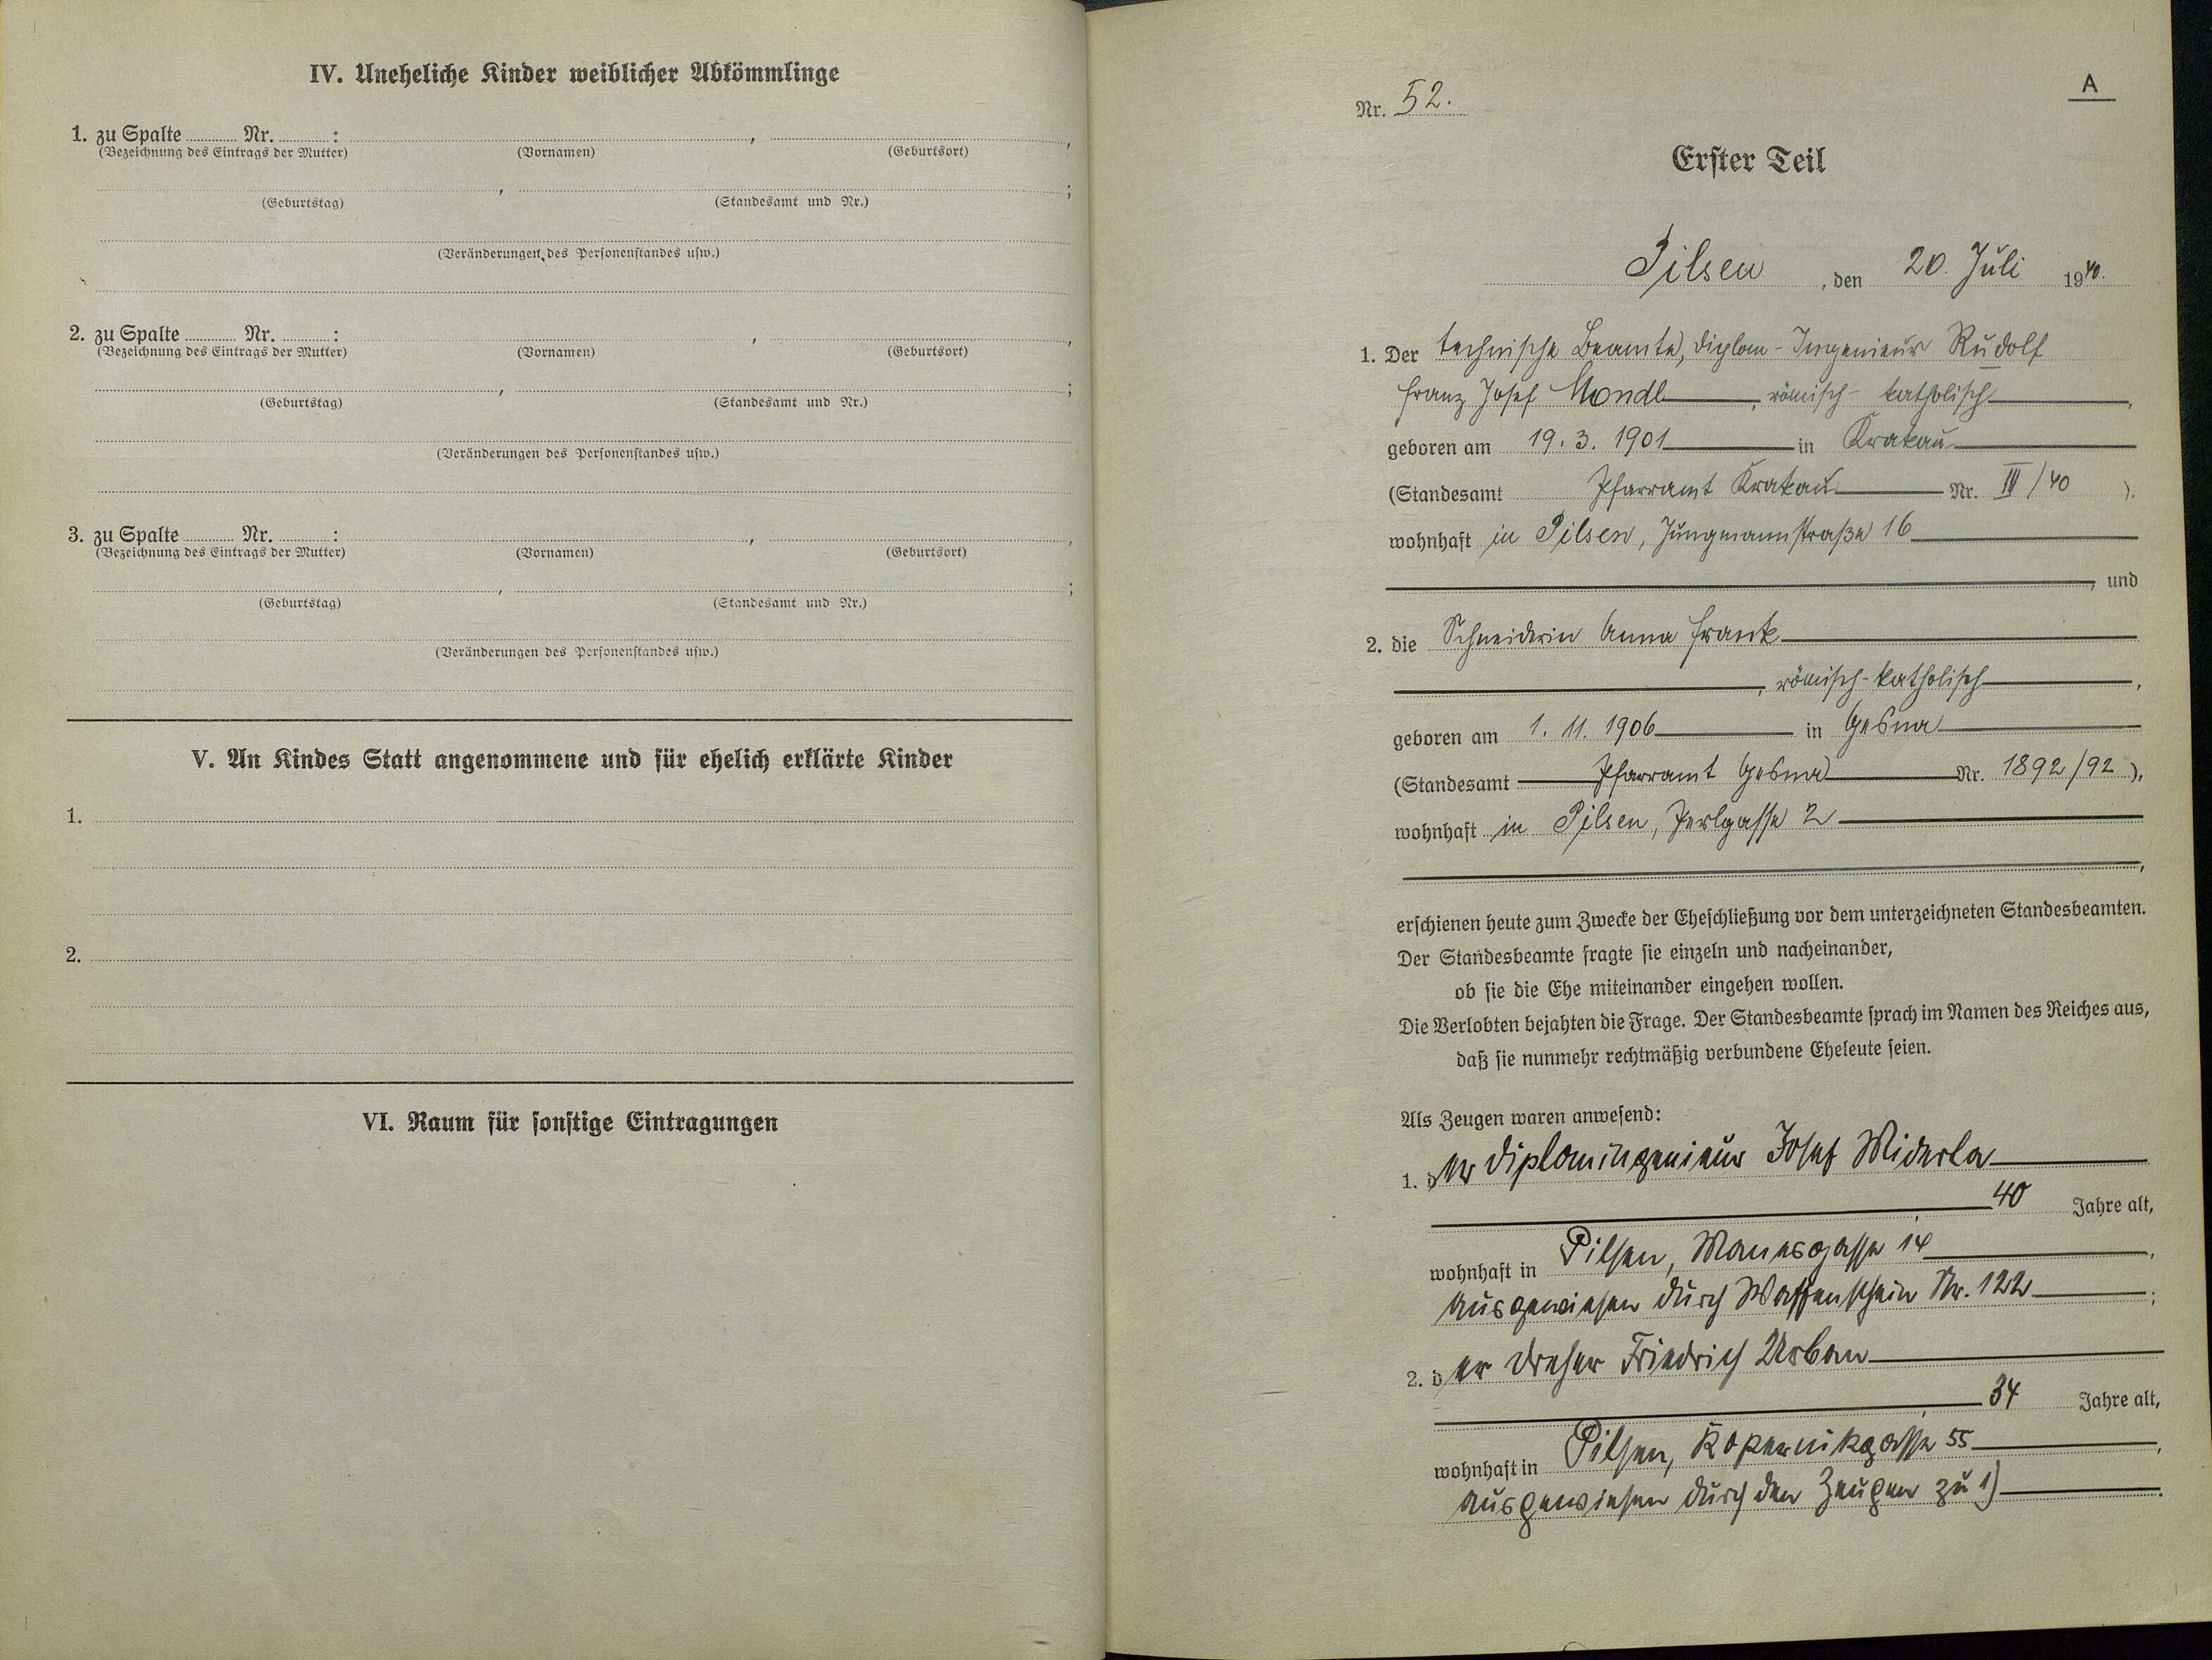 IV. Uneheliche Kinder weiblicher Abkömmlinge
1. zu Spalte Nr. : , ,
(Bezeichnung des Eintrags der Mutter) (Vornamen) (Geburtsort)
, ;
(Geburtstag) (Standesamt und Nr.)
(Veränderungen des Personenstandes usw.)
2. zu Spalte Nr. : , ,
(Bezeichnung des Eintrags der Mutter) (Vornamen) (Geburtsort)
, ;
(Geburtstag) (Standesamt und Nr.)
(Veränderungen des Personenstandes usw.)
3. zu Spalte Nr. : , ,
(Bezeichnung des Eintrags der Mutter) (Vornamen) (Geburtsort)
, ;
(Geburtstag) (Standesamt und Nr.)
(Veränderungen des Personenstandes usw.)
V. An Kindes Statt angenommene und für ehelich erklärte Kinder
1.
2.
VI. Raum für sonstige Eintragungen
A
Nr. 52.
Erster Teil
Pilsen, den 20. Juli 1940.
1. Der technische Beamte, Diplom-Ingenieur Rudolf
Franz Josef Mondl, römisch-katholisch,
geboren am 19. 3. 1901 in Krakau
(Standesamt Pfarramt Krakau Nr. III/40).
wohnhaft in Pilsen, Jungmannstraße 16
, und
2. die Schneiderin Anna Frank
, römisch-katholisch,
geboren am 1. 11. 1906 in Gesna
(Standesamt Pfarramt Gesna Nr. 1892/92),
wohnhaft in Pilsen, Perlgasse 2
,
erschienen heute zum Zwecke der Eheschließung vor dem unterzeichneten Standesbeamten.
Der Standesbeamte fragte sie einzeln und nacheinander,
ob sie die Ehe miteinander eingehen wollen.
Die Verlobten bejahten die Frage. Der Standesbeamte sprach im Namen des Reiches aus,
daß sie nunmehr rechtmäßig verbundene Eheleute seien.
Als Zeugen waren anwesend:
1. der Diplomingenieur Josef Widerla
, 40 Jahre alt,
wohnhaft in Pilsen, Manesgasse 14,
ausgewiesen durch Waffenschein Nr. 122;
2. der Dreher Friedrich Urban
, 34 Jahre alt,
wohnhaft in Pilsen, Kopernikgasse 55,
ausgewiesen durch den Zeugen zu 1).